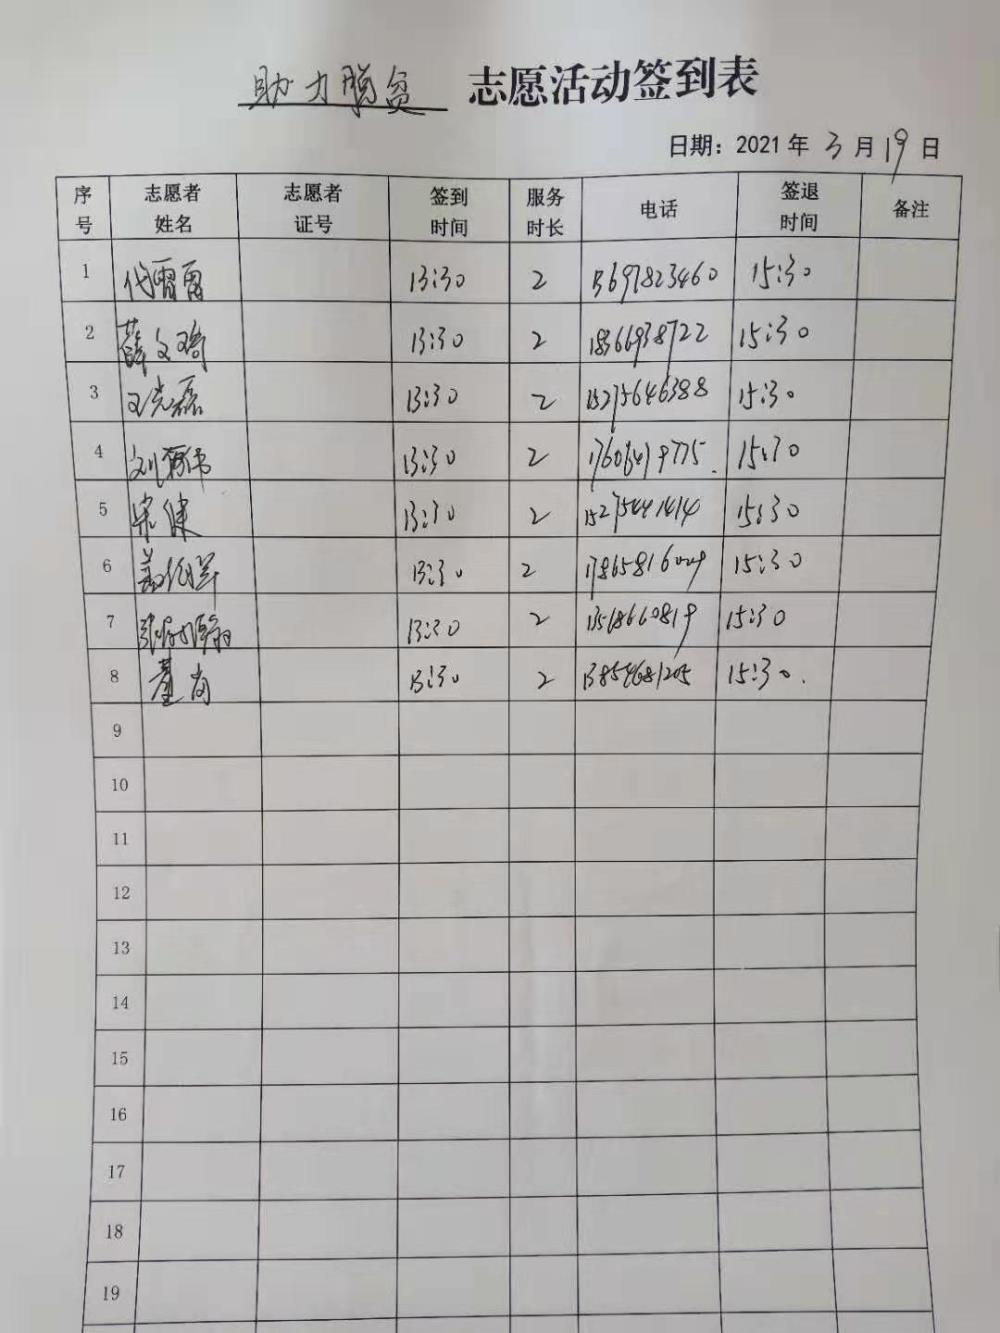 助力脱贫 志愿活动签到表
日期：2021年 3月 19日
序号 志愿者姓名 志愿者证号 签到时间 服务时长 电话 签退时间 备注
1 代雷雷 13:30 2 15:30
2 薛文琦 13:30 2 15:30
3 王克磊 13:30 2 15275646388 15:30
4 13:30 2 15:30
5 宋健 13:30 2 15275441414 15:30
6 13:30 2 15:30
7 13:30 2 13518660819 15:30
8 13:30 2 13854681205 15:30.
9
10
11
12
13
14
15
16
17
18
19